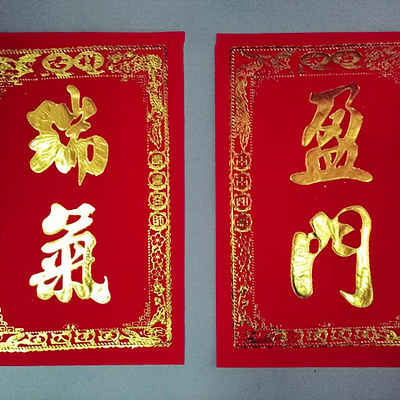 瑞氣
盈門